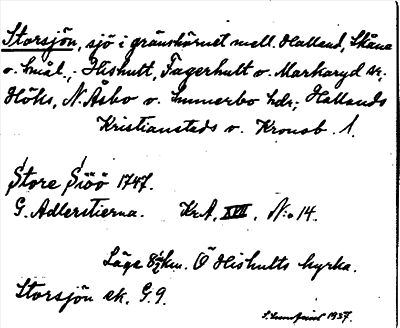 Storsjön, sjö i gränshörnet mell. Halland, Skåne
o. Smål., - Hishult, Fagerhult o. Markaryd snr.
Höks, N. Åsbo o. Sunnerbo hdr; Hallands
Kristianstads o. Kronob. l.
Store Siöö 1747.
G. Adlerstierna. Kr.A. XVII, N:o 14.
Läge 8½ km. Ö Hishults kyrka.
Storsjön ek. G. 9.
1937.